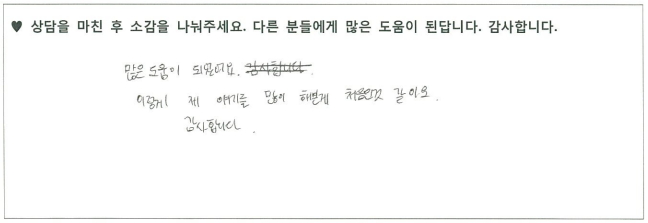 ♥ 상담을 마친 후 소감을 나눠주세요. 다른 분들에게 많은 도움이 된답니다. 감사합니다.
많은 도움이 되었어요. 감사합니다.
이렇게 제 이야기를 많이 해본게 처음인것 같아요.
감사합니다.